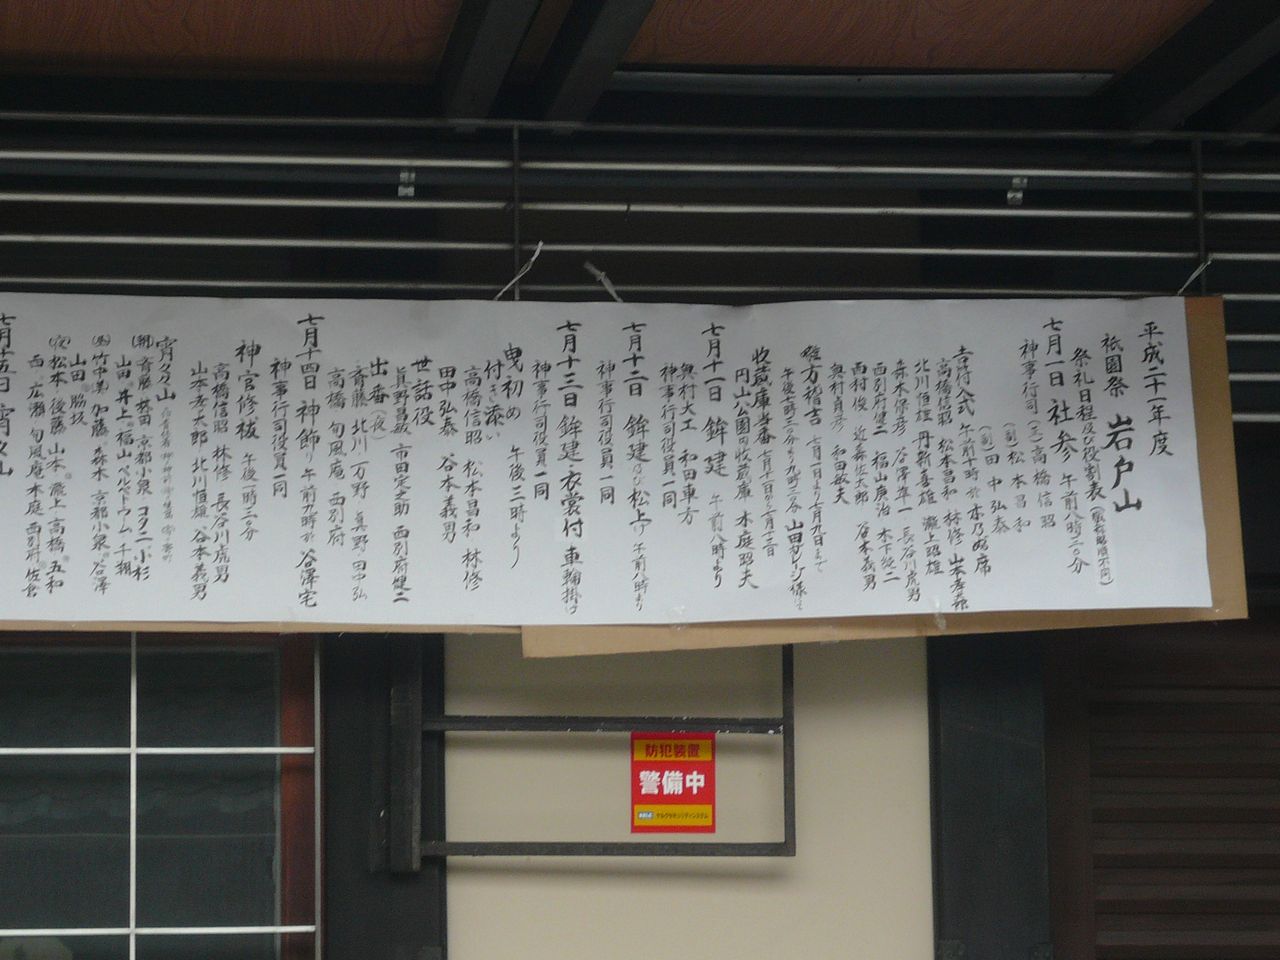 平成二十一年度
祇園祭 岩戸山
祭礼日程及び役割表(敬称略順不同)
七月一日 社参 午前八時三〇分
神事行司(正)高橋信昭
(副)松本昌和
(副)田中弘泰
吉符入式 午前十時 於 木乃婦席
高橋信昭 松本昌和 林修 山本孝太郎
北川恒雄 丹新喜雄 瀧上昭雄
森木保彦 谷澤準一 長谷川虎男
西別府健二 福山庚治 木下純二
西村俊 近藤佐太郎 谷本義男
奥村貞彦 和田敏夫
囃方稽古 七月一日より七月九日まで
午後七時三〇分より九時三〇分 山田ガレージ様にて
収蔵庫当番 七月十一日から七月十三日
円山公園内収蔵庫 木庭昭夫
七月十一日 鉾建 午前八時より
奥村大工 和田車方
神事行司役員一同
七月十二日 鉾建及び松上げ 午前八時より
神事行司役員一同
七月十三日 鉾建・衣裳付 車輪掛け
神事行司役員一同
曳初め 午後三時より
付き添い
高橋信昭 松本昌和 林修
田中弘泰 谷本義男
世話役
眞野昌敏 市田定之助 西別府健二
出番(夜)
斉藤 北川 万野 眞野 田中弘
高橋 旬風庵 西別府
七月十四日 神飾り 午前九時 於 谷澤宅
神事行司役員一同
神官修祓 午後一時三〇分
高橋信昭 林修 長谷川虎男
山本孝太郎 北川恒雄 谷本義男
宵々々山
(朝)斉藤 林田 京都小泉 コタニ 小杉
山田 井上 福山 ベルドーム 千棚
(昼)竹中 加藤 森木 京都小泉 谷澤
山田 脇坂
(夜)松本 後藤 山本 瀧上 高橋 五和
西 広瀬 旬風庵 木庭 西別府 佐倉
七月十五日 宵々山
防犯装置
警備中